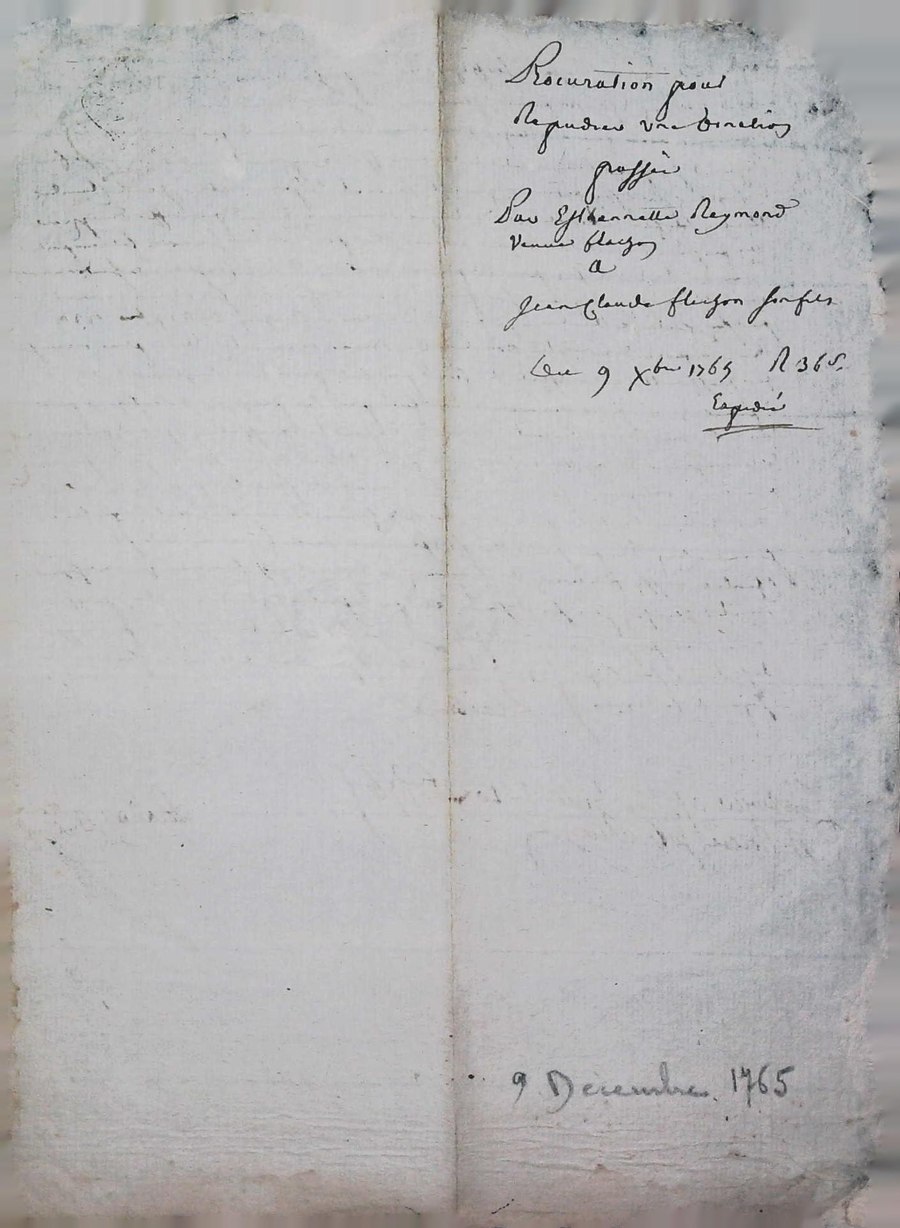 Procuration pour
Repudier une donation
passée
Par Esthiennette Reymond
Veuve fleizon
a
Jean Claude fleizon son fils
Du 9 Xbre 1765 R 36s.
Expedié
9 Decembre 1765